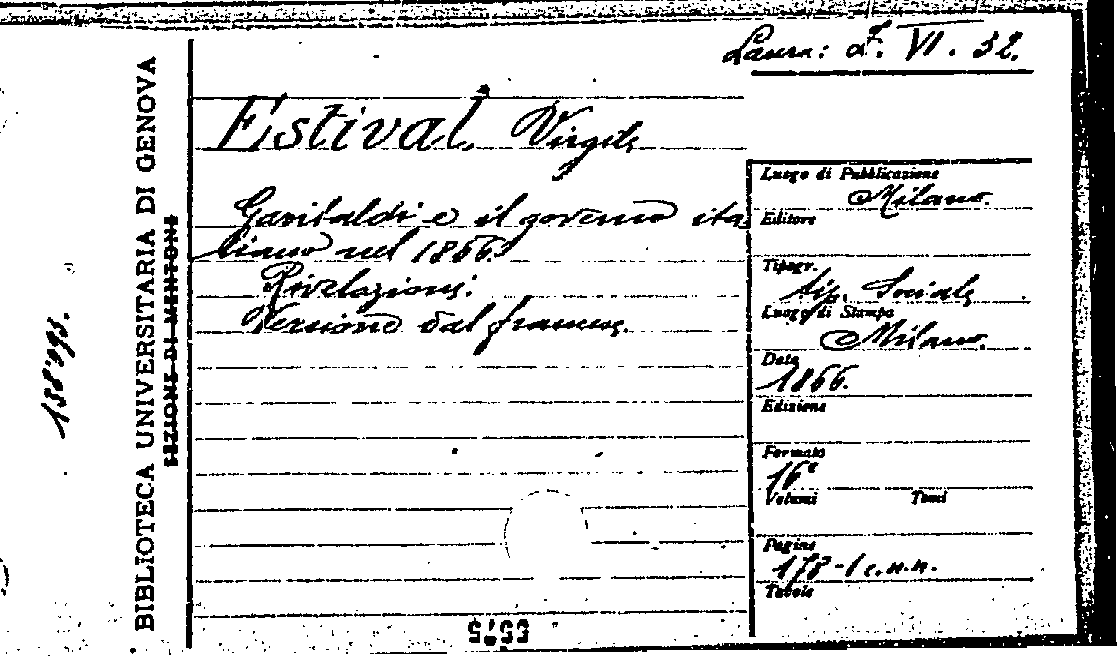 Laura: F. VI. 32.
Estival, Virgile
Garibaldi e il governo ita
liano nel 1866.
Rivelazioni.
Versione dal francese.
Luogo di Pubblicazione
Milano.
Editore
Tipogr.
tip. Sociale
Luogo di Stampa
Milano.
Data
1866.
Edizione
Formato
16°
Volumi Tomi
Pagine
178-1 c.n.n.
Tavole
BIBLIOTECA UNIVERSITARIA DI GENOVA
SEZIONE DI MENTONE